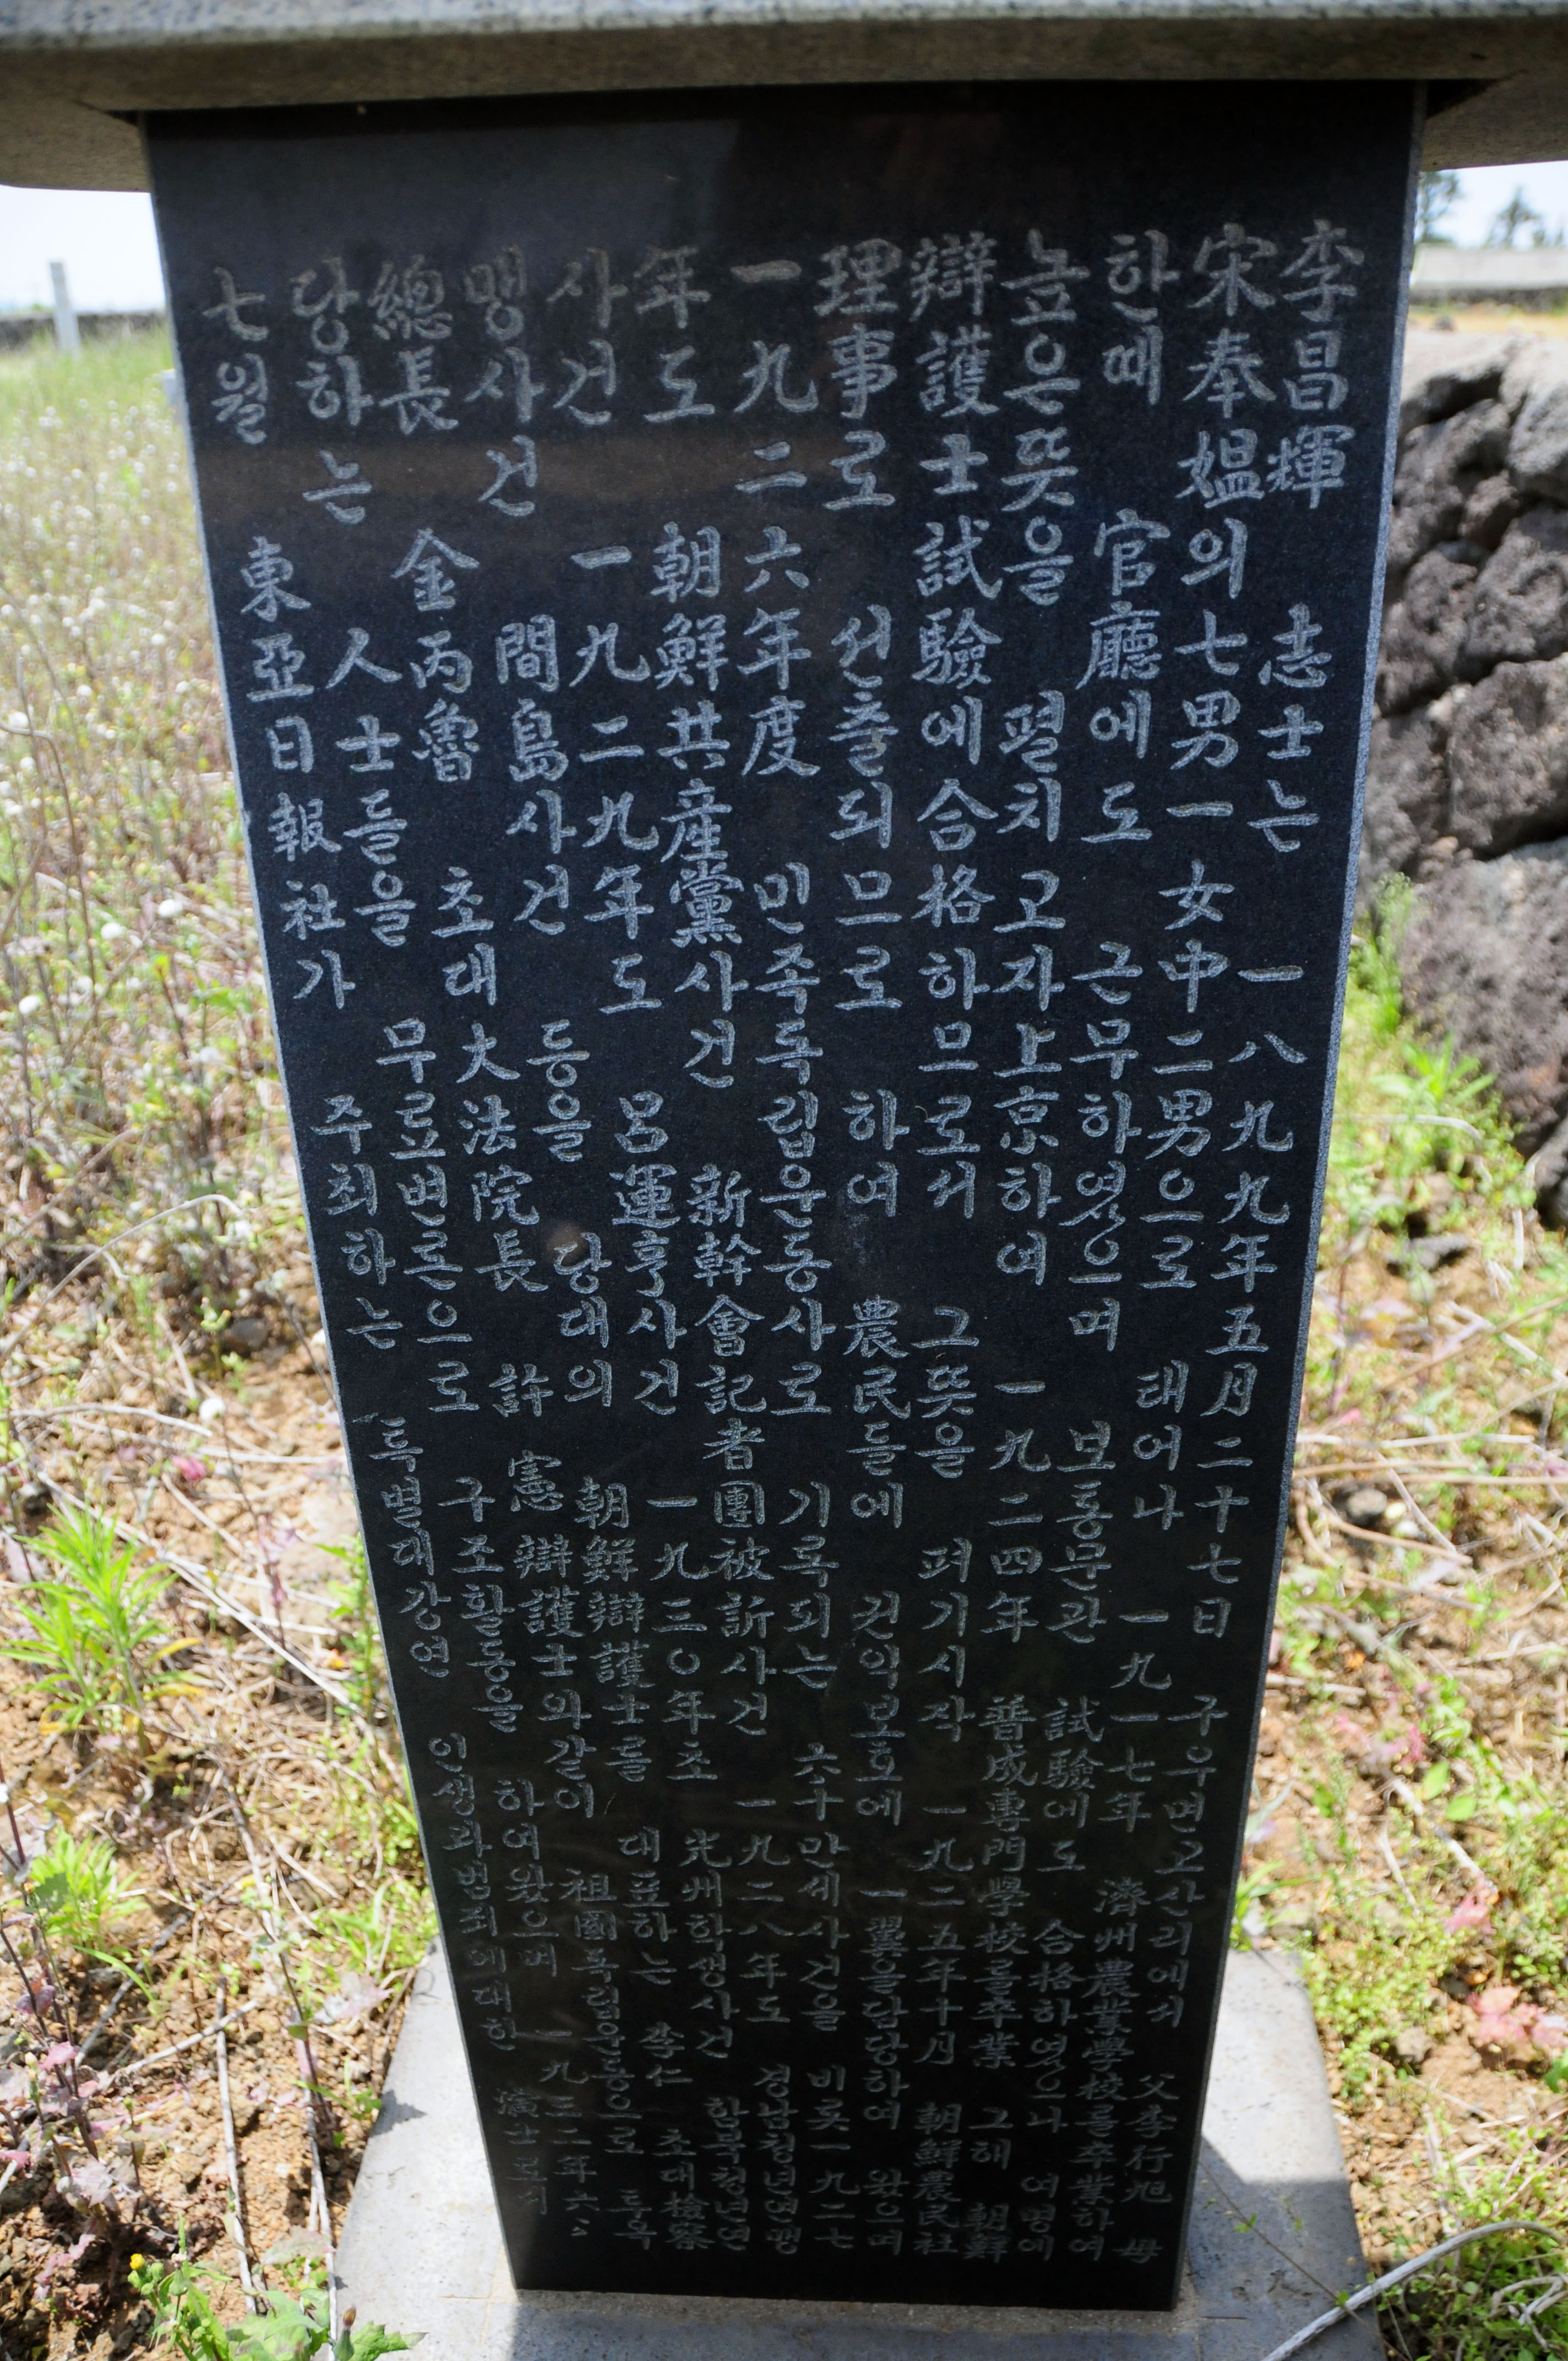 李昌輝 志士는 一八九九年五月二十七日 구우면고산리에서 父李行旭 母
宋奉媼의七男一女中二男으로 태어나 一九一七年 濟州農業學校를卒業하여
한때 官廳에도 근무하였으며 보통문관 試驗에도 合格하였으나 여명에
높은뜻을 펼치고자上京하여 一九二四年 普成專門學校를卒業 그해 朝鮮
辯護士試驗에合格하므로서 그뜻을 펴기시작 一九二五年十月 朝鮮農民社
理事로 선출되므로 하여 農民들에 권익보호에 一翼을담당하여 왔으며
一九二六年度 민족독립운동사로 기록되는 六十만세사건을 비롯一九二七
年도 朝鮮共産黨사건 新幹會記者團被訴사건 一九二八年도 경남청년연맹
사건 一九二九年도 呂運亨사건 一九三〇年초 光州학생사건 함북청년연
맹사건 間島사건 등을 당대의 朝鮮辯護士를 대표하는 李仁 초대檢察
總長 金丙魯 초대大法院長 許憲辯護士와같이 祖國독립운동으로 투옥
당하는 人士들을 무료변론으로 구조활동을 하여왔으며 一九三二年六、
七월 東亞日報社가 주최하는 특별대강연 인생과범죄에대한 演士로서